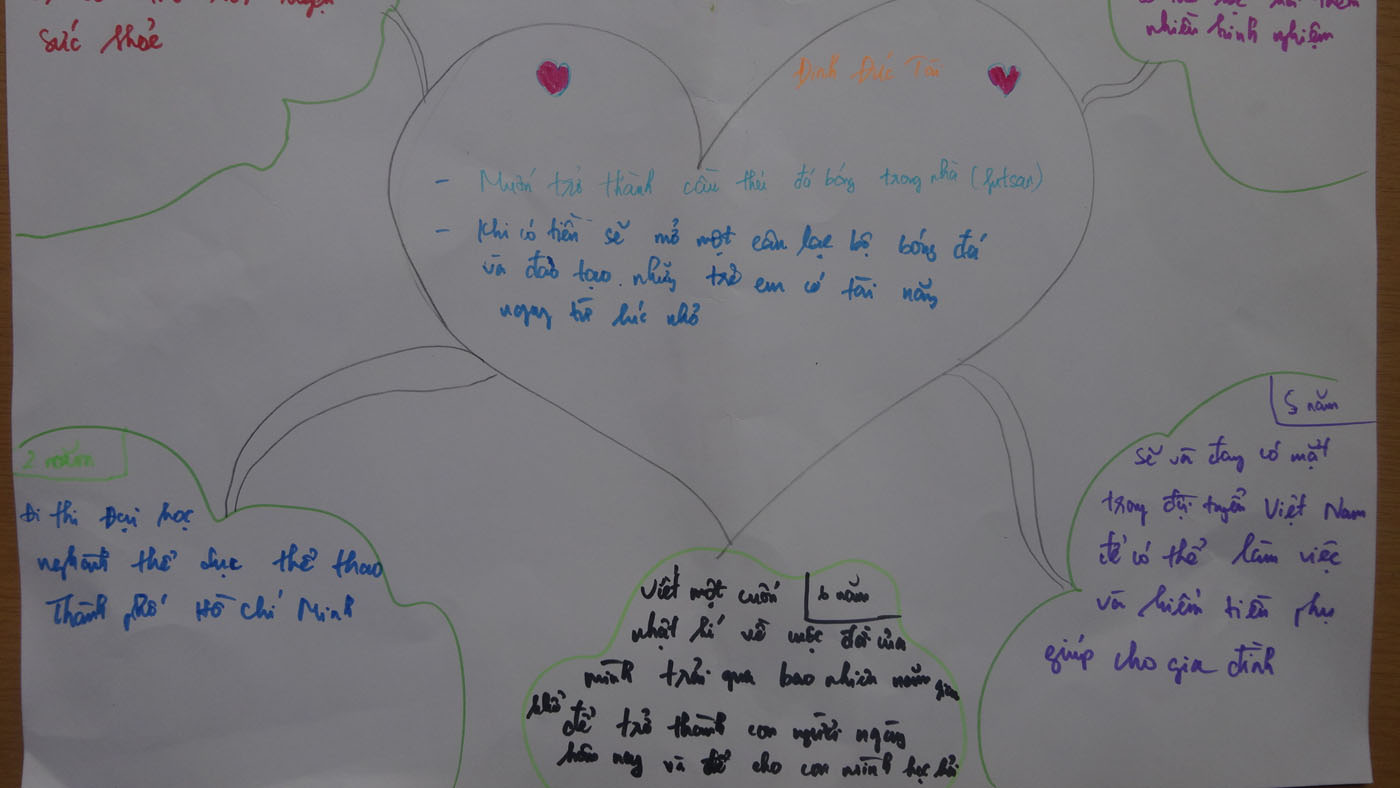 sức khoẻ
nhiều kinh nghiệm
Đinh Đức Tài
- Muốn trở thành cầu thủ đá bóng trong nhà (futsan)
- Khi có tiền sẽ mở một câu lạc bộ bóng đá
và đào tạo những trẻ em có tài năng
ngay từ lúc nhỏ
2 năm
Đi thi Đại học
nghành thể dục thể thao
Thành phố Hồ Chí Minh
5 năm
sẽ và đang có mặt
trong đội tuyển Việt Nam
để có thể làm việc
và kiếm tiền phụ
giúp cho gia đình
6 năm
Viết một cuốn
nhật kí về cuộc đời của
mình trải qua bao nhiên năm gian
khổ
để trở thành con người ngày
hôm nay và để cho con mình học hỏi